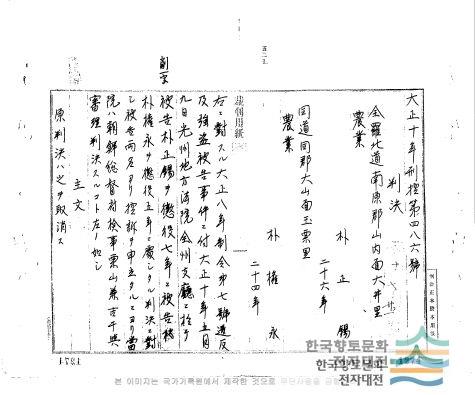 大正十年刑控第四八六號
判决
全羅北道南原郡山内面大井里
農業
朴正錫
二十六年
同道同郡大山面玉栗里
農業
朴權永
二十四年
裁判用紙
右ニ對スル大正八年制令第七號違反
及強盗被告事件ニ付大正十年五月
九日光州地方法院全州支廳ニ於テ
被告朴正錫ヲ懲役七年ニ被告
朴權永ヲ懲役五年ニ處シタル判決ニ對
シ被告両名ヨリ控訴ヲ申立タルニヨリ當
院ハ朝鮮総督府検事栗山兼吉干與
審理判決スルコト左ノ如シ
主文
原判決ハ之ヲ取消ス
1731
한국향토문화
전자대전
한국향토문화
전자대전
본 이미지는 국가기록원에서 제작한 것으로 무단사용을 금